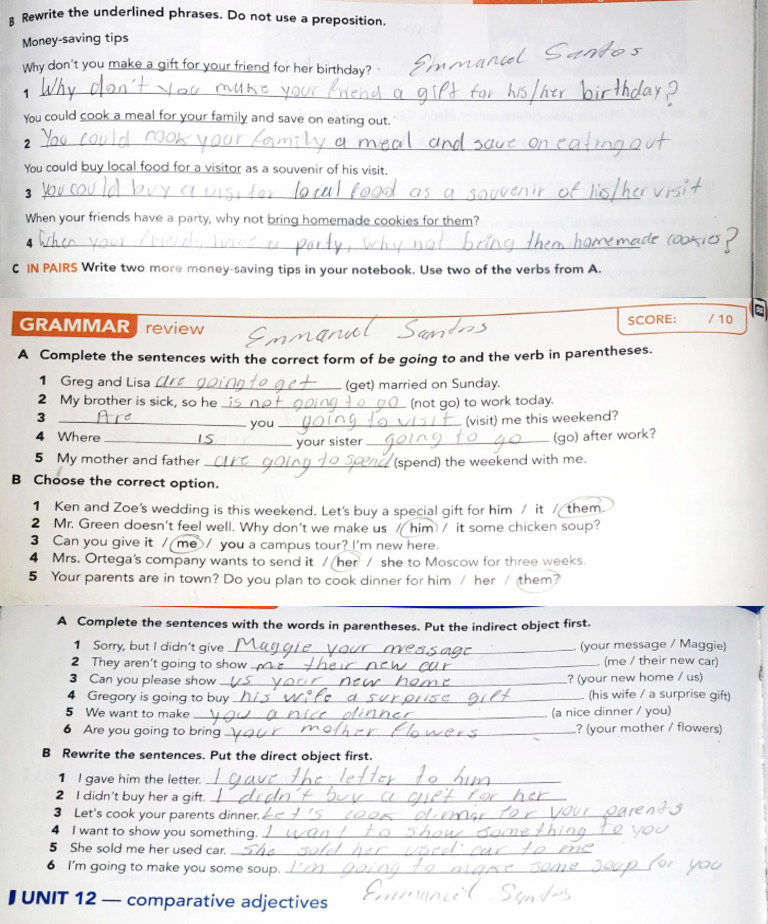 B Rewrite the underlined phrases. Do not use a preposition.
Money-saving tips
Why don't you make a gift for your friend for her birthday? Emmanuel Santos
1 Why don't you make your friend a gift for his/her birthday?
You could cook a meal for your family and save on eating out.
2 You could cook your family a meal and save on eating out
You could buy local food for a visitor as a souvenir of his visit.
3 You could buy a visitor local food as a souvenir of his/her visit
When your friends have a party, why not bring homemade cookies for them?
4 When your friends have a party, why not bring them homemade cookies?
C IN PAIRS Write two more money-saving tips in your notebook. Use two of the verbs from A.
GRAMMAR review Emmanuel Santos SCORE: / 10
A Complete the sentences with the correct form of be going to and the verb in parentheses.
1 Greg and Lisa are going to get (get) married on Sunday.
2 My brother is sick, so he is not going to go (not go) to work today.
3 Are you going to visit (visit) me this weekend?
4 Where is your sister going to go (go) after work?
5 My mother and father are going to spend (spend) the weekend with me.
B Choose the correct option.
1 Ken and Zoe's wedding is this weekend. Let's buy a special gift for him / it / them.
2 Mr. Green doesn't feel well. Why don't we make us / him / it some chicken soup?
3 Can you give it / me / you a campus tour? I'm new here.
4 Mrs. Ortega's company wants to send it / her / she to Moscow for three weeks.
5 Your parents are in town? Do you plan to cook dinner for him / her / them?
A Complete the sentences with the words in parentheses. Put the indirect object first.
1 Sorry, but I didn't give Maggie your message. (your message / Maggie)
2 They aren't going to show me their new car. (me / their new car)
3 Can you please show us your new home? (your new home / us)
4 Gregory is going to buy his wife a surprise gift. (his wife / a surprise gift)
5 We want to make you a nice dinner. (a nice dinner / you)
6 Are you going to bring your mother flowers? (your mother / flowers)
B Rewrite the sentences. Put the direct object first.
1 I gave him the letter. I gave the letter to him
2 I didn't buy her a gift. I didn't buy a gift for her
3 Let's cook your parents dinner. Let's cook dinner for your parents
4 I want to show you something. I want to show something to you
5 She sold me her used car. She sold her used car to me
6 I'm going to make you some soup. I'm going to make some soup for you
UNIT 12 — comparative adjectives Emmanuel Santos